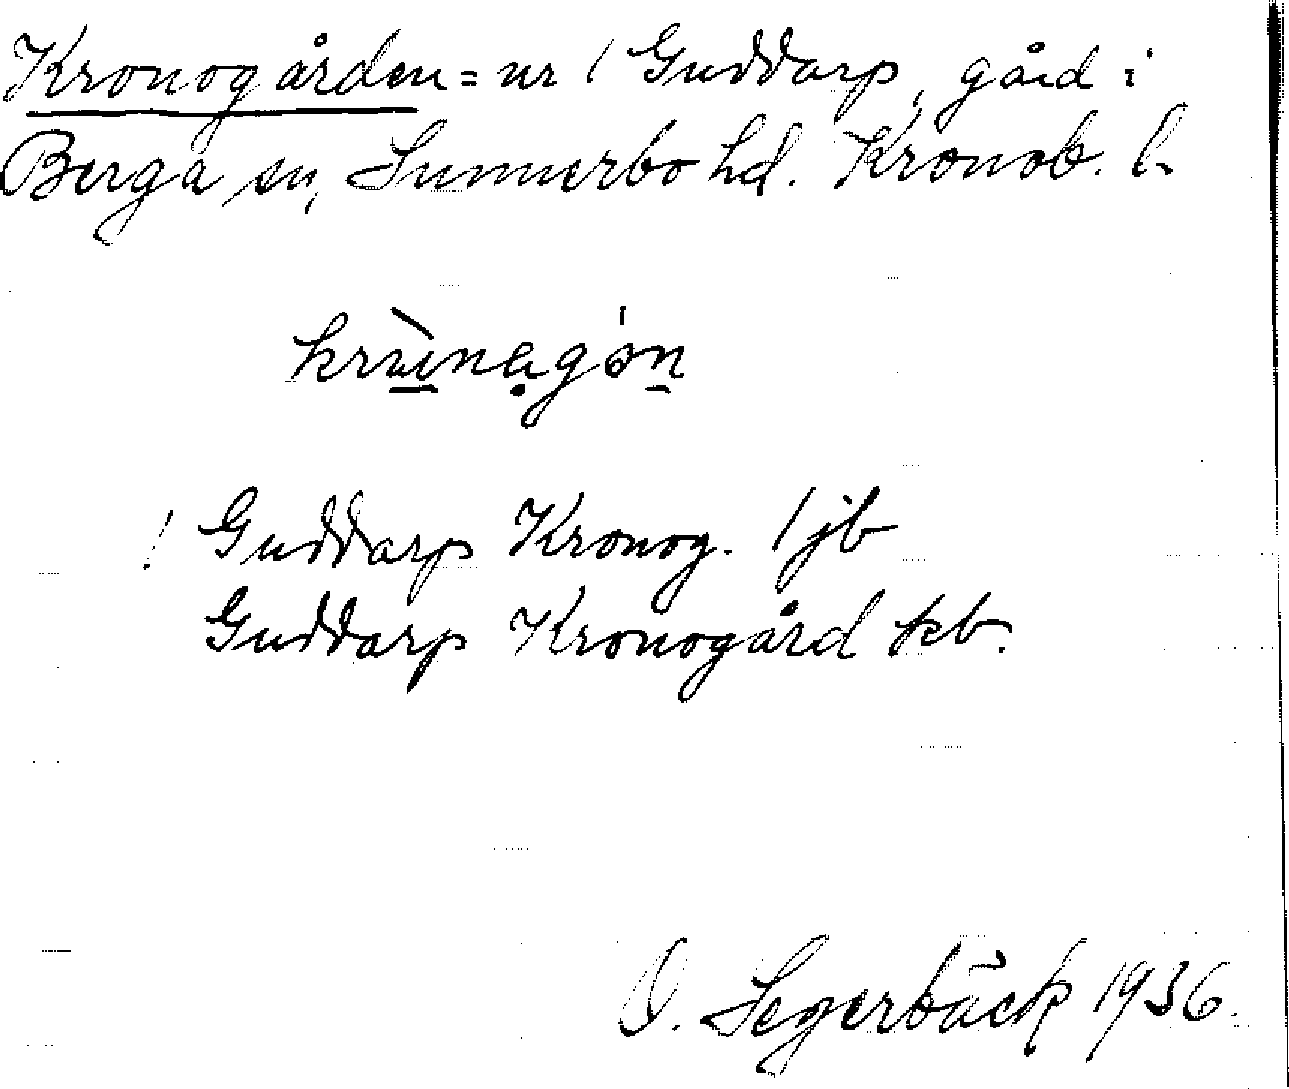 Kronogården = nr 1 Guddarp, gård i
Berga sn, Sunnerbo hd. Kronob. l.
! Guddarp Kronog. 1 jb
Guddarp Kronogård kb.
O. Segerbäck 1936.